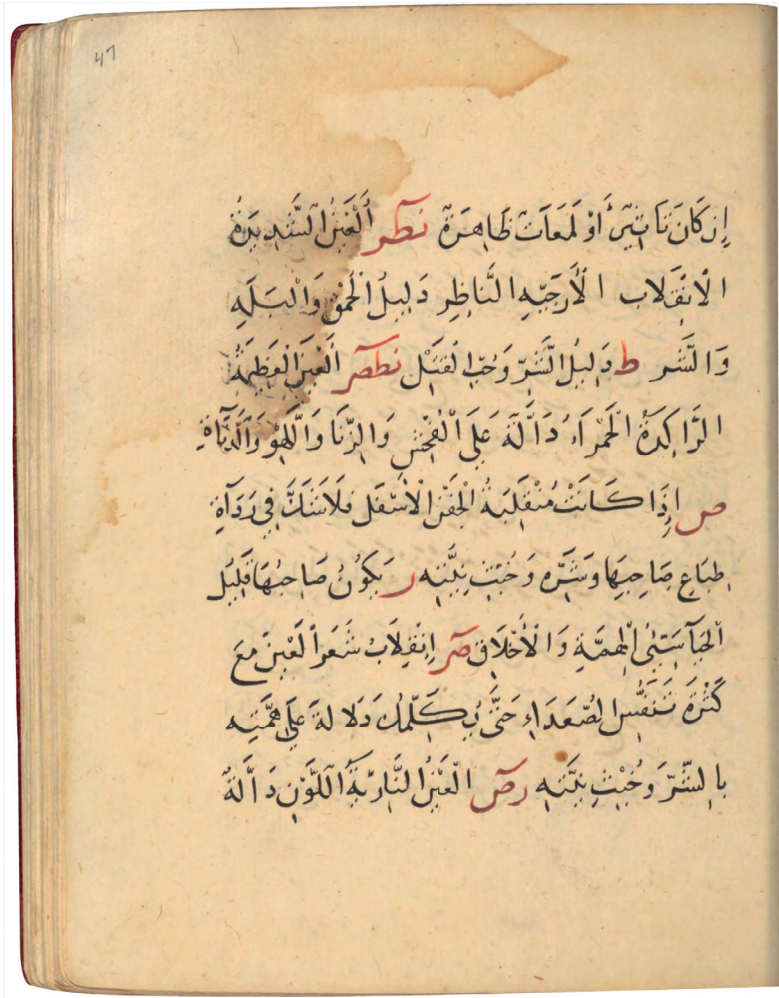 47
إِن كَانَ نَاتِئِينَ أَوْ لَمَعَاتٌ ظَاهِرَةٌ نظر أَلْعَيْنُ الشَّدِيدَةُ
الْاِنْقِلَابِ الْأَرَجِيَّةِ النَّاظِرِ دَلِيلُ الْحُمْقِ وَالْبَلَهِ
وَالشَّر ط دَلِيلُ الشَّرِّ وَحُبِّ الْقَتْلِ نطصر أَلْعَيْنُ الْعَظِيمَةُ
الرَّاكِدَةُ الْحَمْرَاءُ دَالَّةٌ عَلَى الْفُحْشِ وَالزِّنَا وَاللَّهْوِ وَالدَّنَاةِ
ص إِذَا كَانَتْ مُنْقَلِبَةُ الْجَفْنِ الْأَسْفَلِ فَلَا شَكَّ فِي رَدَآةِ
طِبَاعِ صَاحِبِهَا وَشَرِّهِ وَخُبْثِ نِيَّتِهِ ر يَكُونُ صَاحِبُهَا قَلِيلَ
الْحَيَآ سَيِّئَ الْهِمَّةِ وَالْأَخْلَاقِ صر اِنْقِلَابُ شَعَرِ الْعَيْنِ مَعَ
كَثْرَةِ تَنَفُّسِ الصُّعَدَاءِ حَتَّى يُكَلِّمُكَ دَلَالَةٌ عَلَى هِمَّتِهِ
بِالشَّرِّ وَخُبْثِ نِيَّتِهِ رص الْعَيْنُ النَّارِيَّةُ اللَّوْنِ دَالَّةٌ